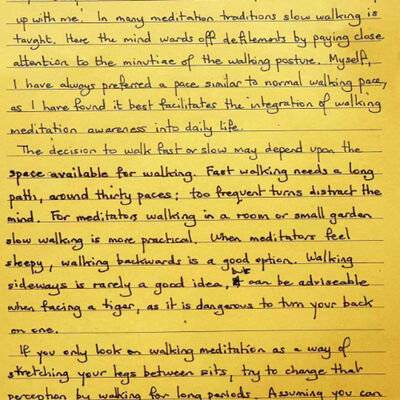 up with me. In many meditation traditions slow walking is
taught. Here the mind wards off defilements by paying close
attention to the minutiae of the walking posture. Myself,
I have always preferred a pace similar to normal walking pace,
as I have found it best facilitates the integration of walking
meditation awareness into daily life.
The decision to walk fast or slow may depend upon the
space available for walking. Fast walking needs a long
path, around thirty paces; too frequent turns distract the
mind. For meditators walking in a room or small garden
slow walking is more practical. When meditators feel
sleepy, walking backwards is a good option. Walking
sideways is rarely a good idea, but can be adviseable
when facing a tiger, as it is dangerous to turn your back
on one.
If you only look on walking meditation as a way of
stretching your legs between sits, try to change that
perception by walking for long periods. Assuming you can